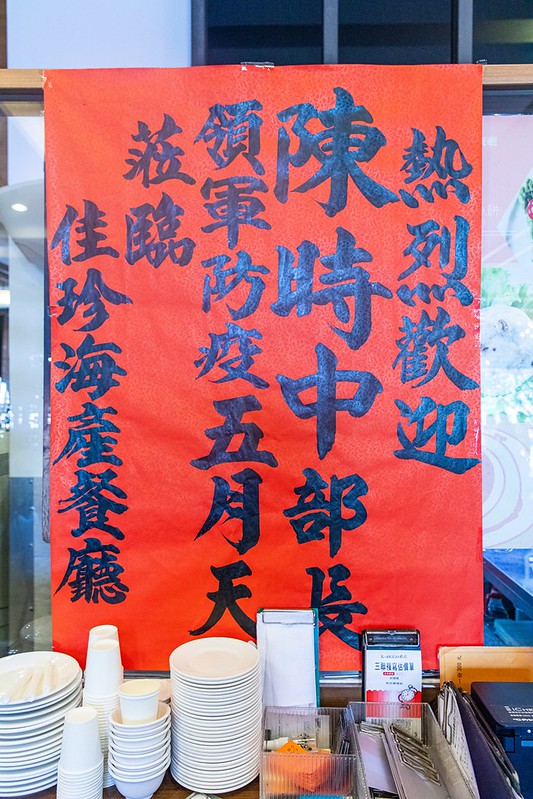 熱烈歡迎
陳時中部長
領軍防疫五月天
蒞臨
佳珍海產餐廳
三聯複寫估價單